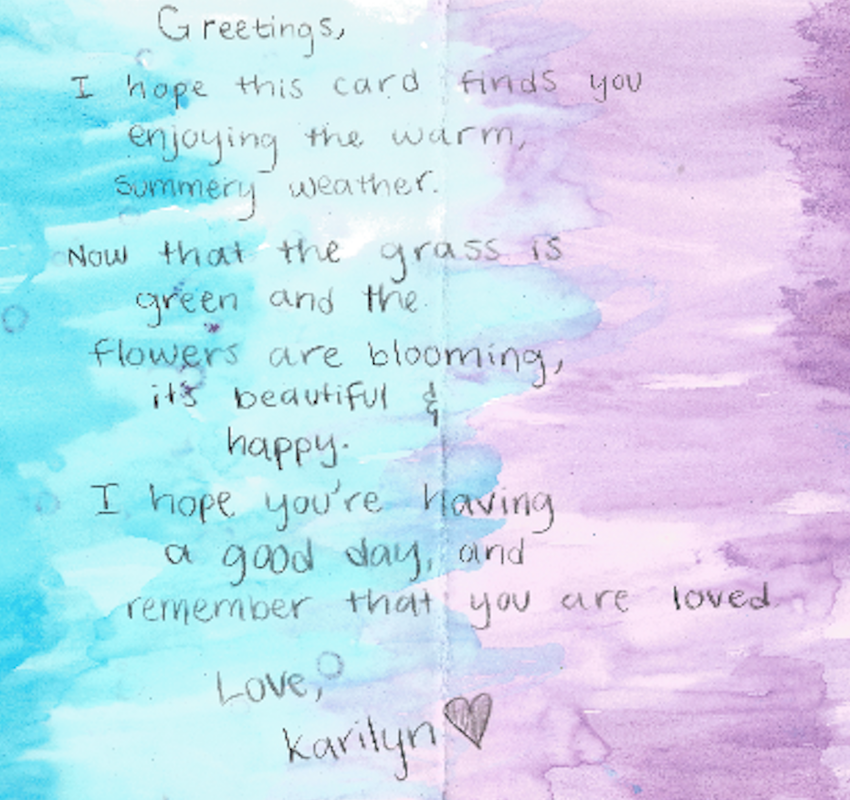 Greetings,
I hope this card finds you
enjoying the warm,
summery weather.
Now that the grass is
green and the
flowers are blooming,
it's beautiful &
happy.
I hope you're having
a good day, and
remember that you are loved
Love,
Karilyn